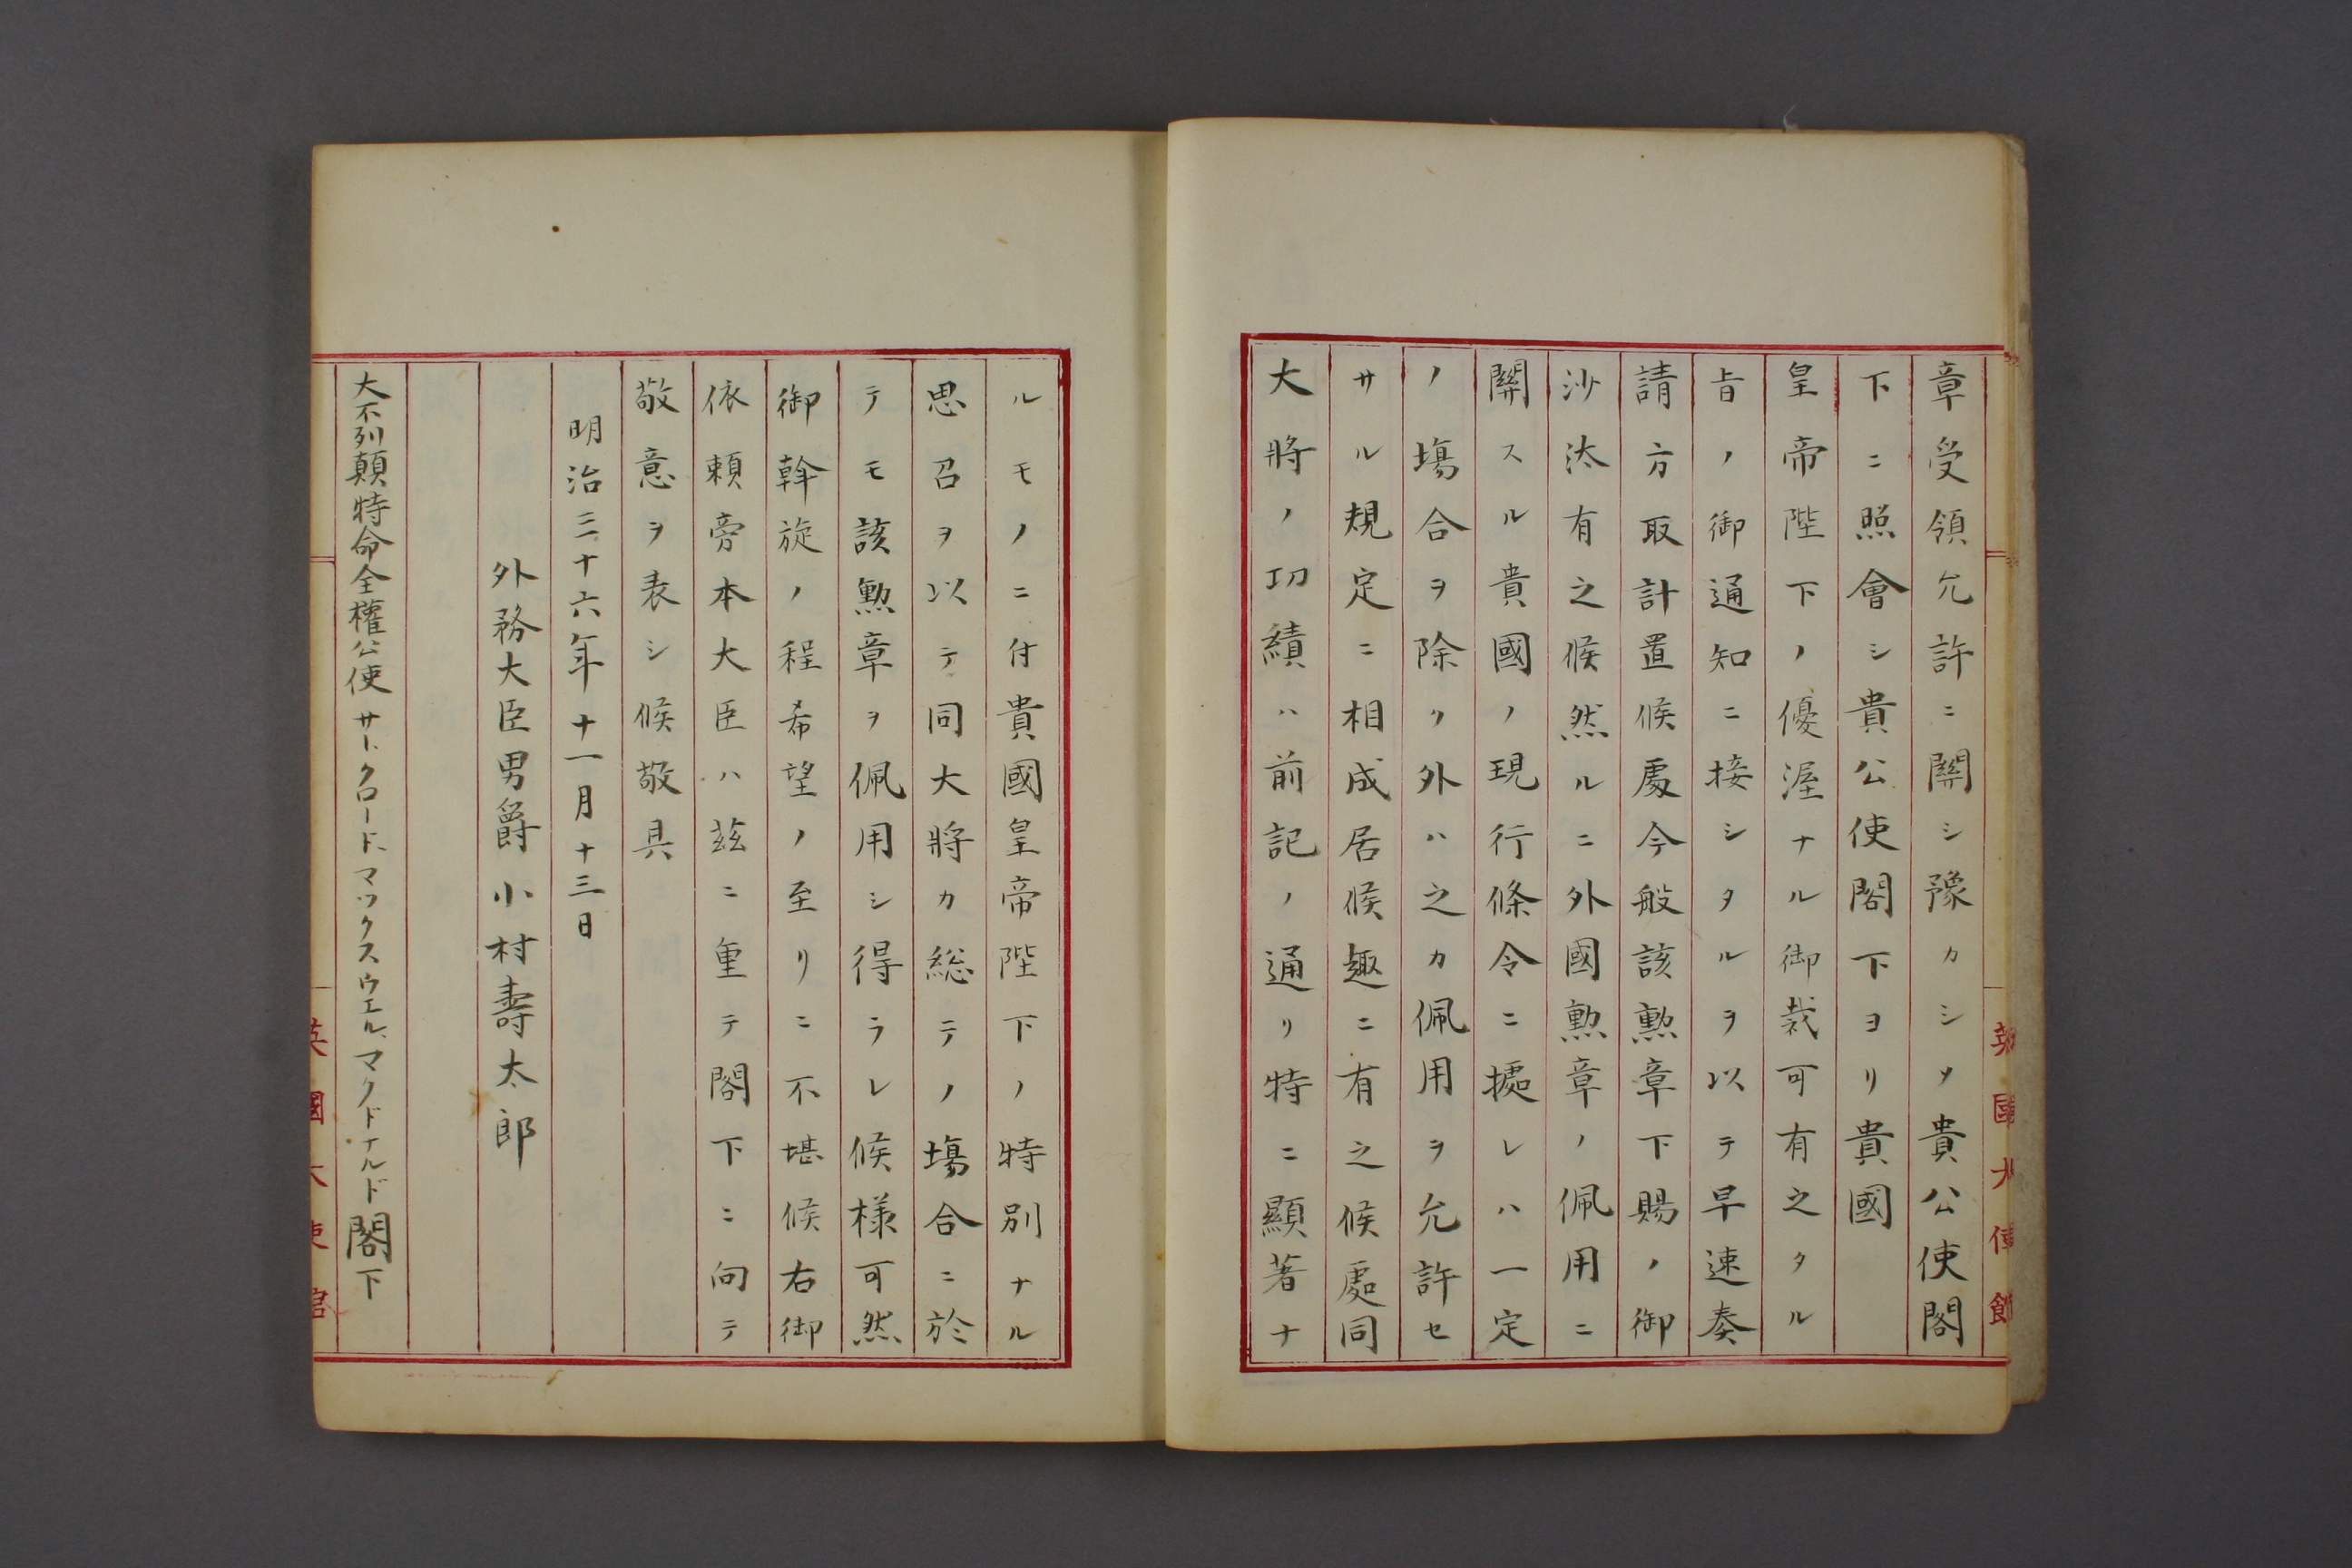 章受領允許ニ關シ豫カシメ貴公使閣
下ニ照會シ貴公使閣下ヨリ貴國
皇帝陛下ノ優渥ナル御裁可有之タル
旨ノ御通知ニ接シタルヲ以テ早速奏
請方取計置候處今般該勲章下賜ノ御
沙汰有之候然ルニ外國勲章ノ佩用ニ
關スル貴國ノ現行條令ニ據レハ一定
ノ塲合ヲ除ク外ハ之カ佩用ヲ允許セ
サル規定ニ相成居候趣ニ有之候處同
大將ノ功績ハ前記ノ通リ特ニ顯著ナ
ルモノニ付貴國皇帝陛下ノ特別ナル
思召ヲ以テ同大將カ総テノ塲合ニ於
テモ該勲章ヲ佩用シ得ラレ候様可然
御斡旋ノ程希望ノ至リニ不堪候右御
依頼旁本大臣ハ茲ニ重テ閣下ニ向テ
敬意ヲ表シ候敬具
明治三十六年十一月十三日
外務大臣男爵小村壽太郎
大不列顛特命全權公使サー、クロード、マックスウエル、マクドナルド閣下
英國大使館